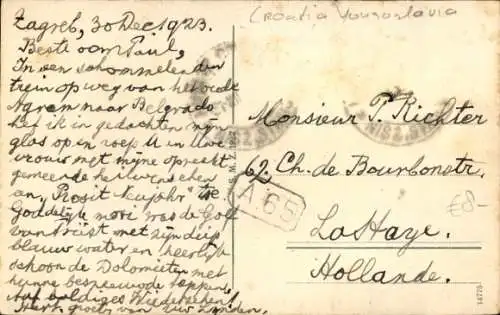 Croatia Yougoslavia
Zagreb, 30 Dec. 1923.
Beste oom Paul,
In een schommelenden
trein op weg van het oude
Agram naar Belgrado
hef ik in gedachten mijn
glas op en roep U en Uwe
vrouw met mijne oprecht
gemeende heilwenschen
en "Prosit Neujahr" toe
Goddelijk mooi was de Golf
van Triëst met zijn diep
blauw water en heerlijk
schoon de Dolomieten met
hunne besneeuwde toppen.
Auf baldiges Wiedersehen!
Hart. groet van uw
Monsieur P. Richter
62, Ch. de Bourbonstr.
La Haye.
Hollande.
A 65
S. M. Z.
€8-
14775